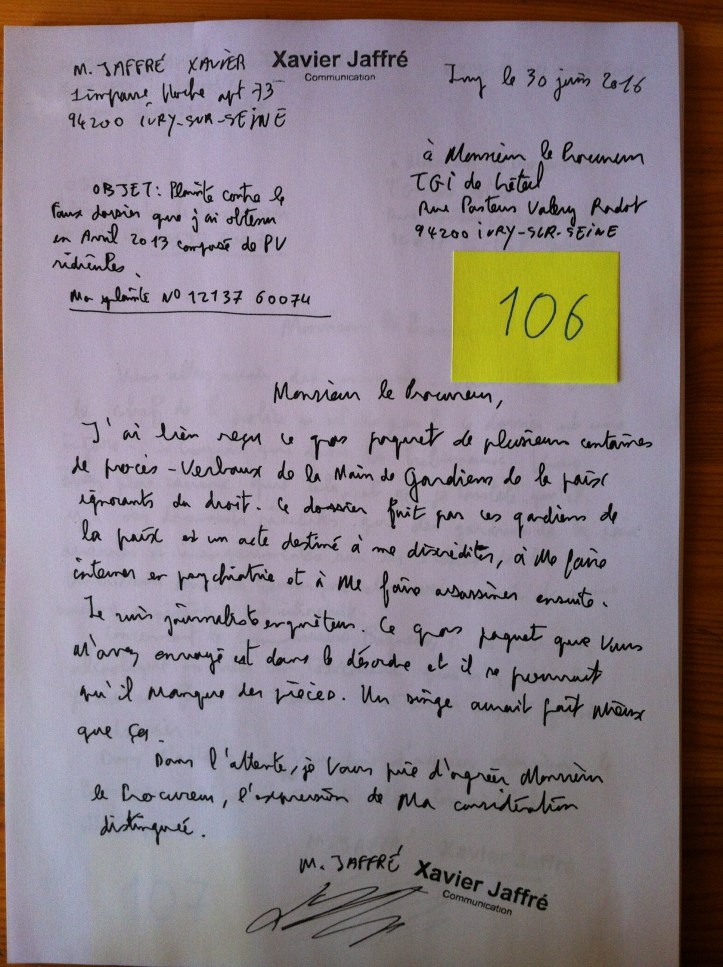 M. JAFFRÉ XAVIER
Xavier Jaffré
Communication
1 impasse Hoche apt 73
94200 IVRY-SUR-SEINE
Ivry le 30 juin 2016
à Monsieur le Procureur
TGI de Créteil
Rue Pasteur Valery Radot
94200 IVRY-SUR-SEINE
OBJET: Plainte contre le
Faux dossier que j'ai obtenu
en Avril 2013 composé de PV
Ma plainte N° 12137 60074
106
Monsieur le Procureur,
J'ai bien reçu ce gros paquet de plusieurs centaines
de procès-Verbaux de la Main de Gardiens de la paix
ignorants du droit. Ce dossier fait par ces gardiens de
la paix est un acte destiné à me discréditer, à Me faire
interner en psychiatrie et à Me faire assassiner ensuite.
Je suis journaliste enquêteur. Ce gros paquet que Vous
M'avez envoyé est dans le désordre et il se pourrait
qu'il Manque des pièces. Un singe aurait fait Mieux
que ça.
Dans l'attente, je Vous prie d'agréer Monsieur
le Procureur, l'expression de Ma considération
distinguée.
M. JAFFRÉ
Xavier Jaffré
Communication